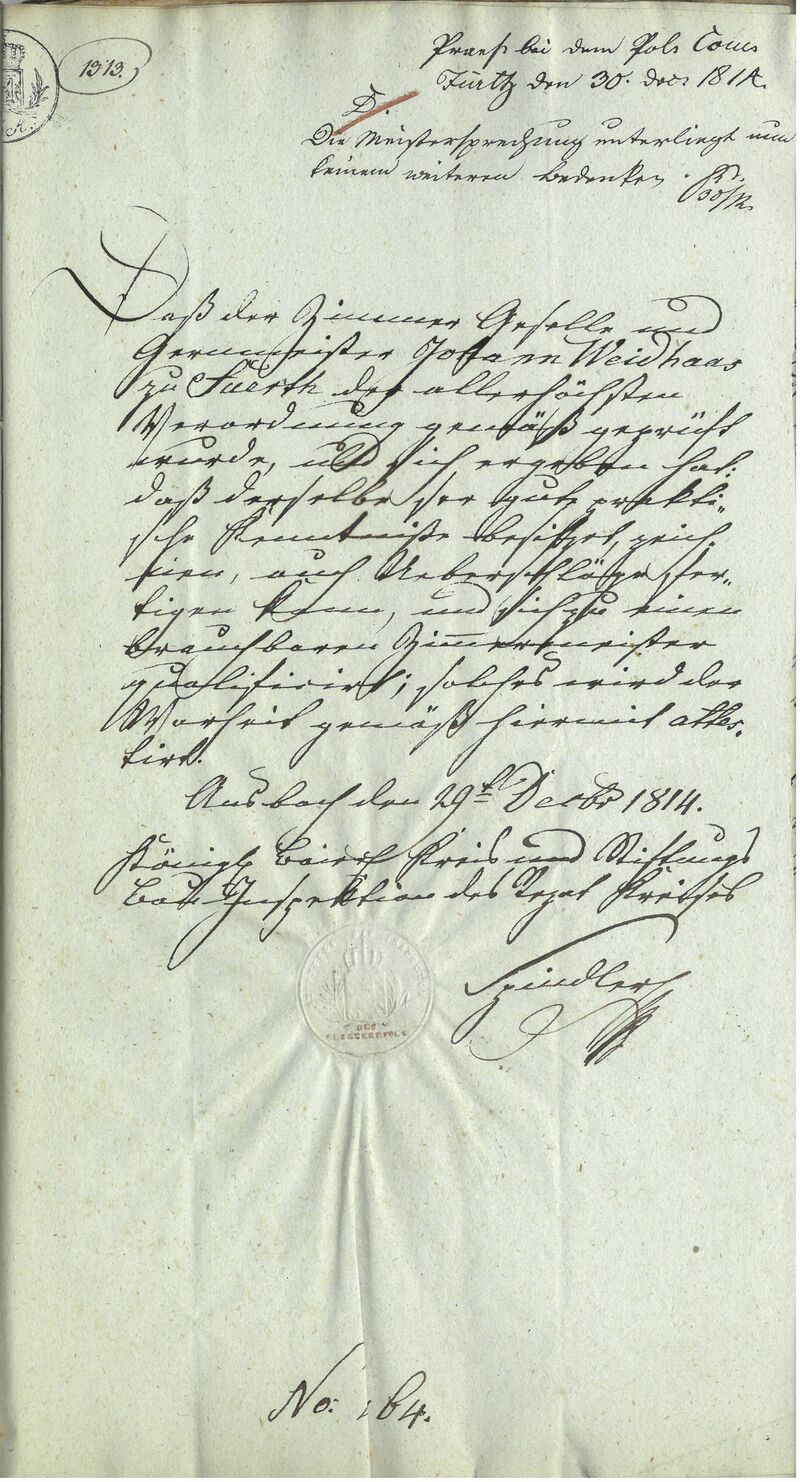 1313.
Praes. bei dem Pol. Com.
Fürth den 30. Dec. 1814.
D.
Die Meistersprechung unterliegt nun
keinem weiteren Bedenken.
30/12
Daß der Zimmer Geselle und
Johann Weidhaas
zu Fuerth der allerhöchsten
Verordnung gemäß geprüft
wurde, und sich ergeben hat:
daß derselbe ser gute prakti„
sche Kenntniße besitzet, zeich„
nen, auch Ueberschläge fer„
tigen kann, und sich zu einen
brauchbaren Zimmermeister
qualificirt; solches wird der
Warheit gemäß hiermit attes„
tirt.
Ansbach den 29t Decbr 1814.
Königl baier Kreis und Stiftungs
Bau Inspektion des Rezat Kreises
Spindler
No: 164.